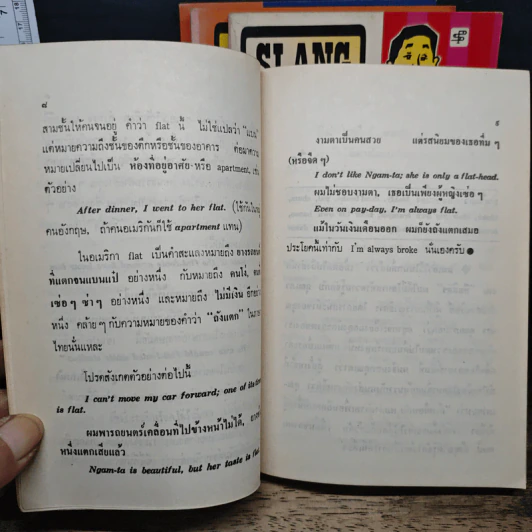 SLANG
๘
สามชั้นให้คนจนอยู่ คำว่า flat นี้ ไม่ใช่แปลว่า "แบน"
แต่หมายความถึงชั้นของตึกหรือชั้นของอาคาร ต่อมาความ
หมายเปลี่ยนไปเป็น ห้องที่อยู่อาศัย หรือ apartment, เช่น
ตัวอย่าง
After dinner, I went to her flat. (ใช้กันใน
คนอังกฤษ, ถ้าคนอเมริกันก็ใช้ apartment แทน)
ในอเมริกา flat เป็นคำสะแลงหมายถึง ยางรถยนต์
ที่แตกจนแบนแป้ อย่างหนึ่ง กับหมายถึง คนโง่,
เซ่อๆ ซ่าๆ อย่างหนึ่ง และหมายถึง ไม่มีเงิน อีกอย่าง
หนึ่ง คล้ายๆ กับความหมายของคำว่า "ถังแตก" ในภาษา
ไทยนั่นแหละ
โปรดสังเกตตัวอย่างต่อไปนี้
I can't move my car forward; one of its
is flat.
ผมพารถยนต์เคลื่อนที่ไปข้างหน้าไม่ได้,
หนึ่งแตกเสียแล้ว
Ngam-ta is beautiful, but her taste is flat
๙
งามตาเป็นคนสวย แต่รสนิยมของเธอทึ่ม ๆ
(หรือจืด ๆ)
I don't like Ngam-ta; she is only a flat-head.
ผมไม่ชอบงามตา, เธอเป็นเพียงผู้หญิงเซ่อ ๆ
Even on pay-day, I'm always flat.
แม้ในวันเงินเดือนออก ผมก็ยังถังแตกเสมอ
ประโยคนี้เท่ากับ I'm always broke นั่นเองครับ ●